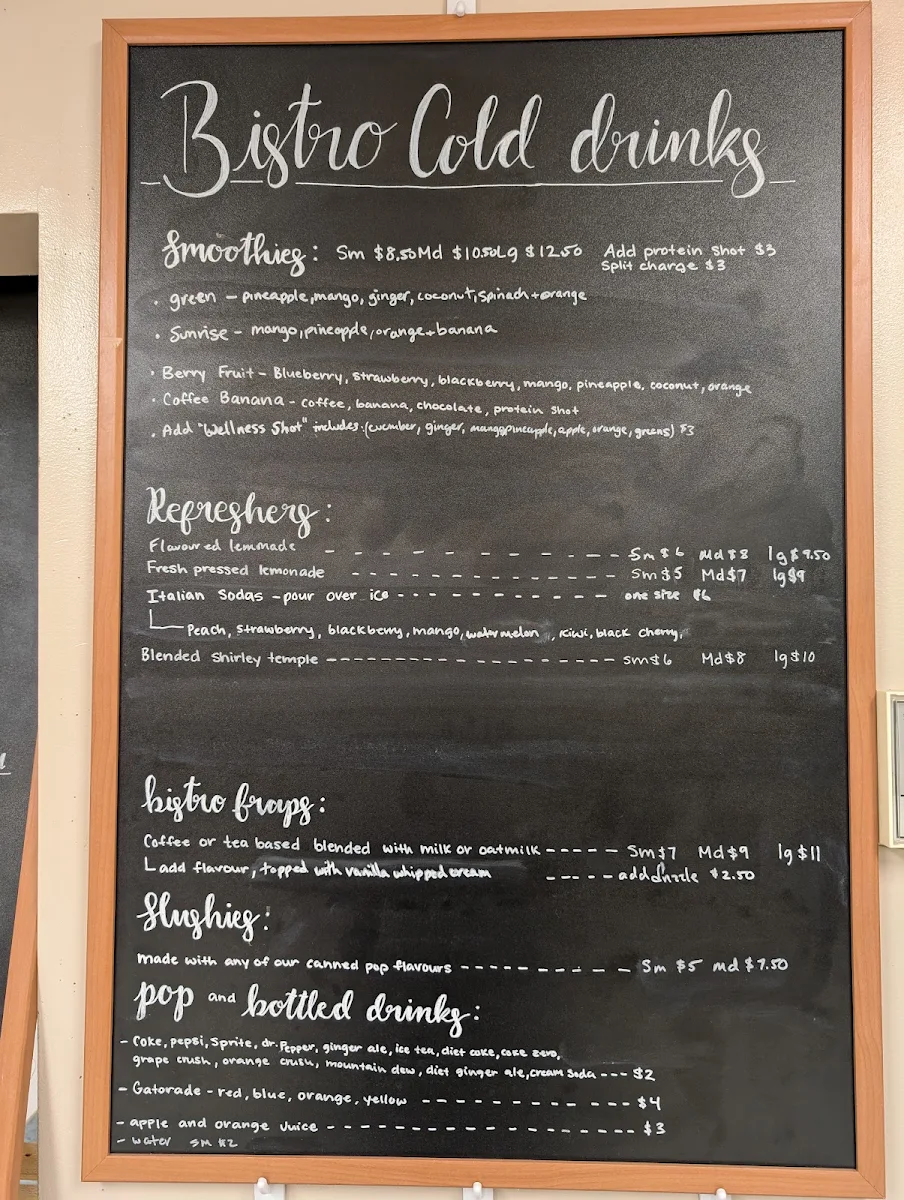 Bistro Cold drinks
Smoothies: Sm $8.50 Md $10.50 Lg $12.50 Add protein shot $3
Split charge $3
• green – pineapple, mango, ginger, coconut, spinach + orange
• Sunrise – mango, pineapple, orange + banana
• Berry Fruit – Blueberry, strawberry, blackberry, mango, pineapple, coconut, orange
• Coffee Banana – coffee, banana, chocolate, protein shot
• Add "Wellness Shot" includes: (cucumber, ginger, mango, pineapple, apple, orange, greens) $3
Refreshers:
Flavoured lemonade - - - - - - - - - Sm $6 Md $8 lg $9.50
Fresh pressed lemonade - - - - - - - - - - - - - - Sm $5 Md $7 lg $9
Italian Sodas – pour over ice - - - - - - - - - - - one size $6
Peach, strawberry, blackberry, mango, watermelon, kiwi, black cherry,
Blended Shirley temple - - - - - - - - - - - - - - - - - - Sm $6 Md $8 lg $10
bistro fraps:
Coffee or tea based blended with milk or oatmilk - - - - - Sm $7 Md $9 lg $11
add flavour, topped with vanilla whipped cream - - - - - add drizzle $2.50
Slushies:
made with any of our canned pop flavours - - - - - - - - - - Sm $5 md $7.50
pop and bottled drinks:
– Coke, pepsi, Sprite, dr. Pepper, ginger ale, ice tea, diet coke, coke zero,
grape crush, orange crush, mountain dew, diet ginger ale, cream soda - - - $2
– Gatorade – red, blue, orange, yellow - - - - - - - - - - - - $4
– apple and orange Juice - - - - - - - - - - - - - - - - - - $3
– water sm $2